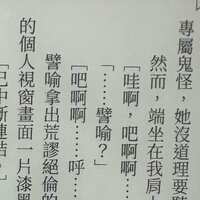 專屬鬼怪，她沒道理要聽
然而，端坐在我肩
［哇啊，吧啊啊……
［……譬喻？］
［吧啊啊……呼……
譬喻拿出荒謬絕倫的
的個人視窗畫面一片漆黑
［已中斷連結。］